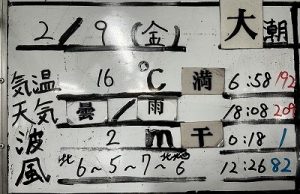 2/9(金) 大潮
気温 16 ℃ 満 6:58 192
天気 曇/雨 18:08 209
波 2 m 干 0:18 1
風 北6~5~7~北北西6 12:26 82